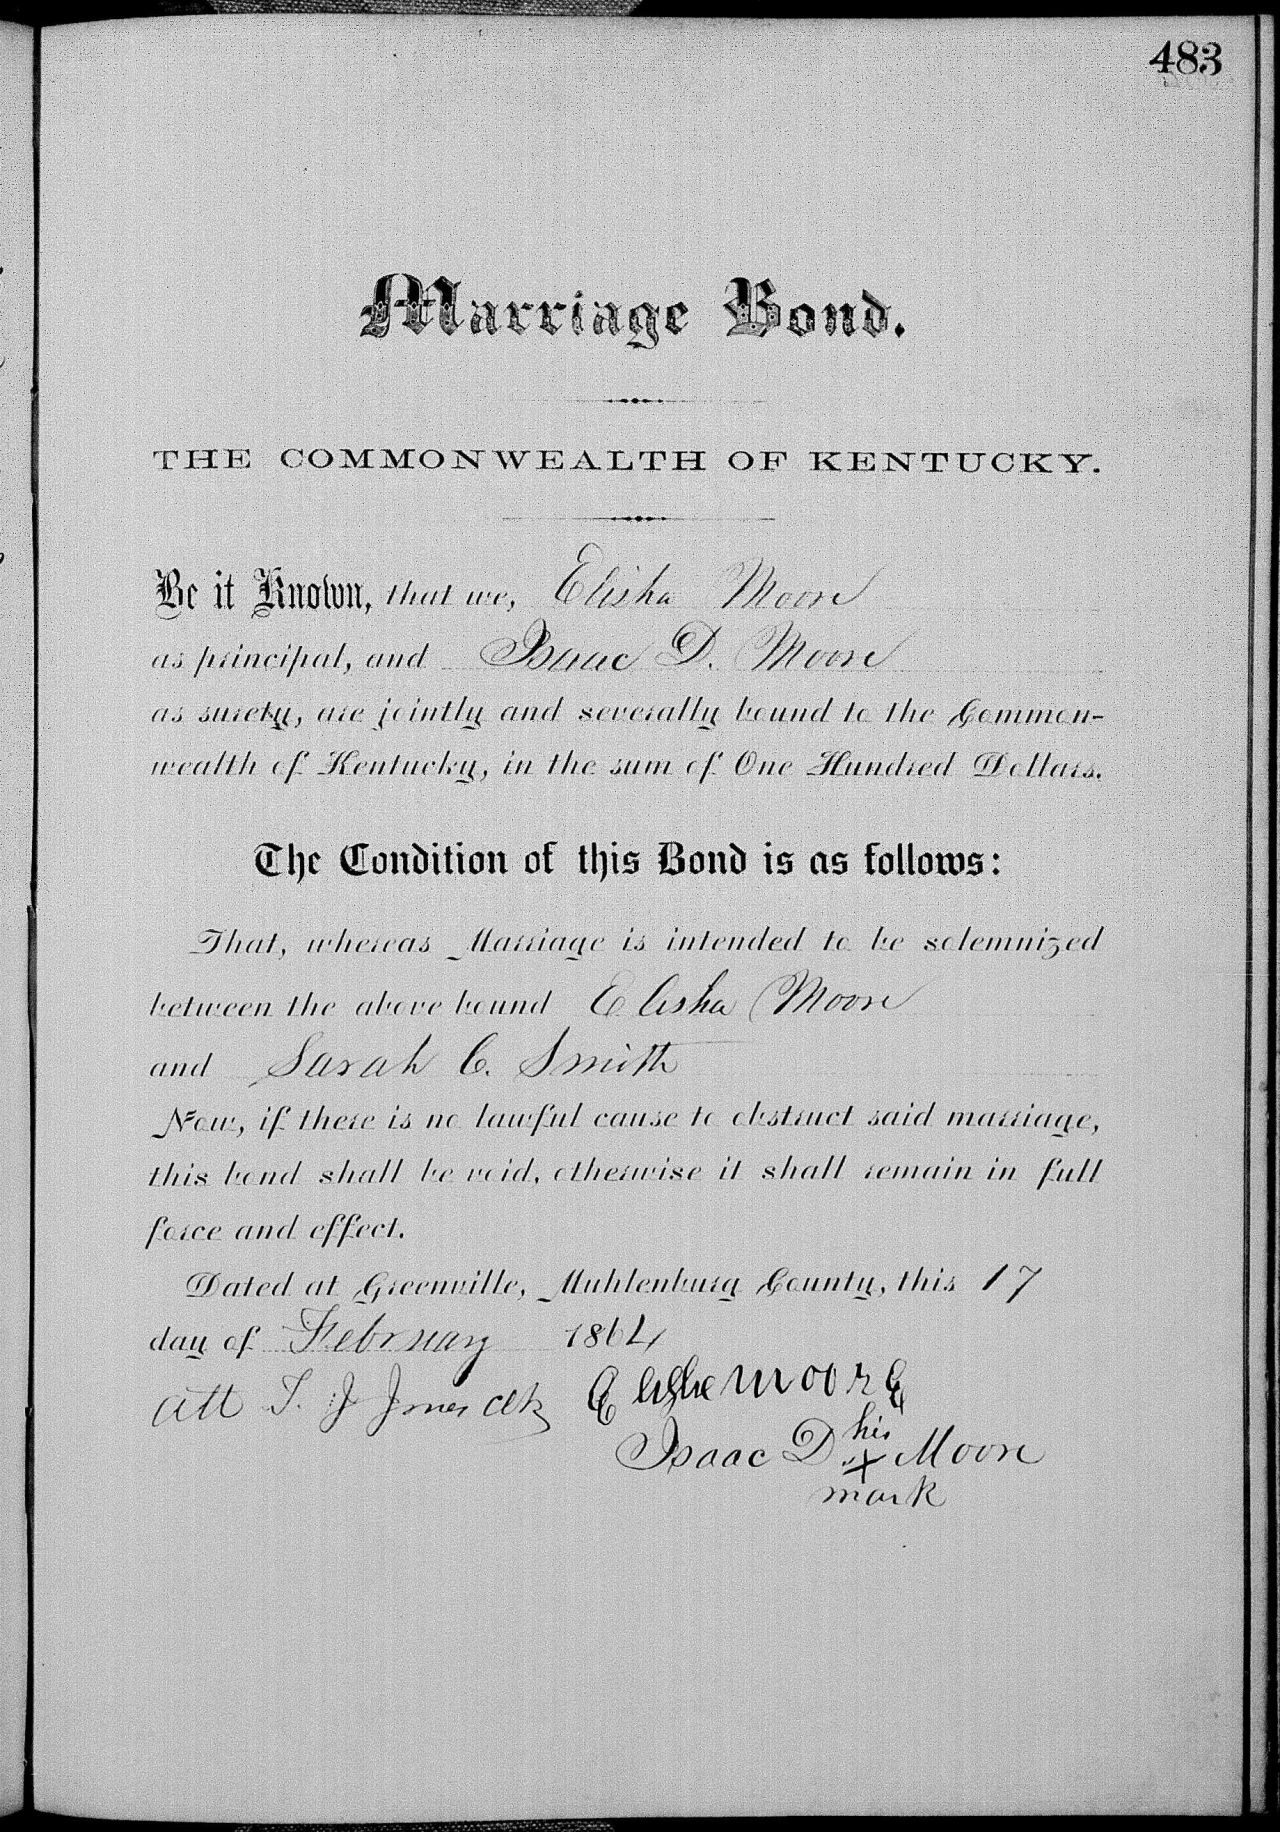 483
Marriage Bond.
THE COMMONWEALTH OF KENTUCKY.
Be it Known, that we, Elisha Moore
as principal, and Isaac D. Moore
as surety, are jointly and severally bound to the Common-
wealth of Kentucky, in the sum of One Hundred Dollars.
The Condition of this Bond is as follows:
That, whereas Marriage is intended to be solemnized
between the above bound Elisha Moore
and Sarah C. Smith
Now, if there is no lawful cause to obstruct said marriage,
this bond shall be void, otherwise it shall remain in full
force and effect.
Dated at Greenville, Muhlenburg County, this 17
day of February 1864
Att T. J Jones Clk Elishe Moore
his
Isaac D X Moore
mark